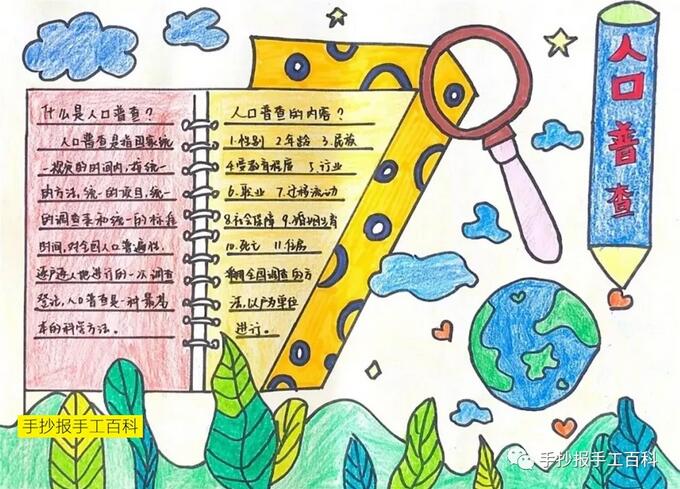 什么是人口普查？
人口普查是指国家统
一规定的时间内，按统一
的方法，统一的项目，统一
的调查表和统一的标准
时间，对全国人口普遍性、
逐户逐人地进行的一次调查
登记，人口普查是一种最基
本的科学方法。
人口普查的内容？
1.性别 2.年龄 3.民族
4.受教育程度 5.行业
6.职业 7.迁移流动
8.社会保障 9.婚姻生育
10.死亡 11.住房
全国调查的方
法，以户为单位
进行。
人口普查
手抄报手工百科
手抄报手工百科